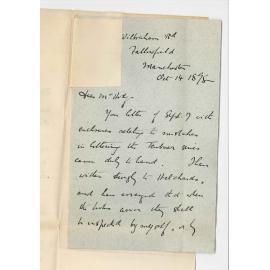 Wilbraham Rd
Fallowfield
Manchester
Oct 14
Dear Mr
Your letter of Sept. 7 with
enclosures relating to mistakes
in lettering the Turner
came duly to hand. I have
written to
and have arranged that when
the arrive they shall
be inspected by myself, or by